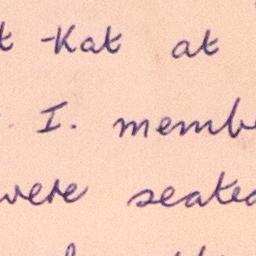 -Kat at
I. memb
were seated